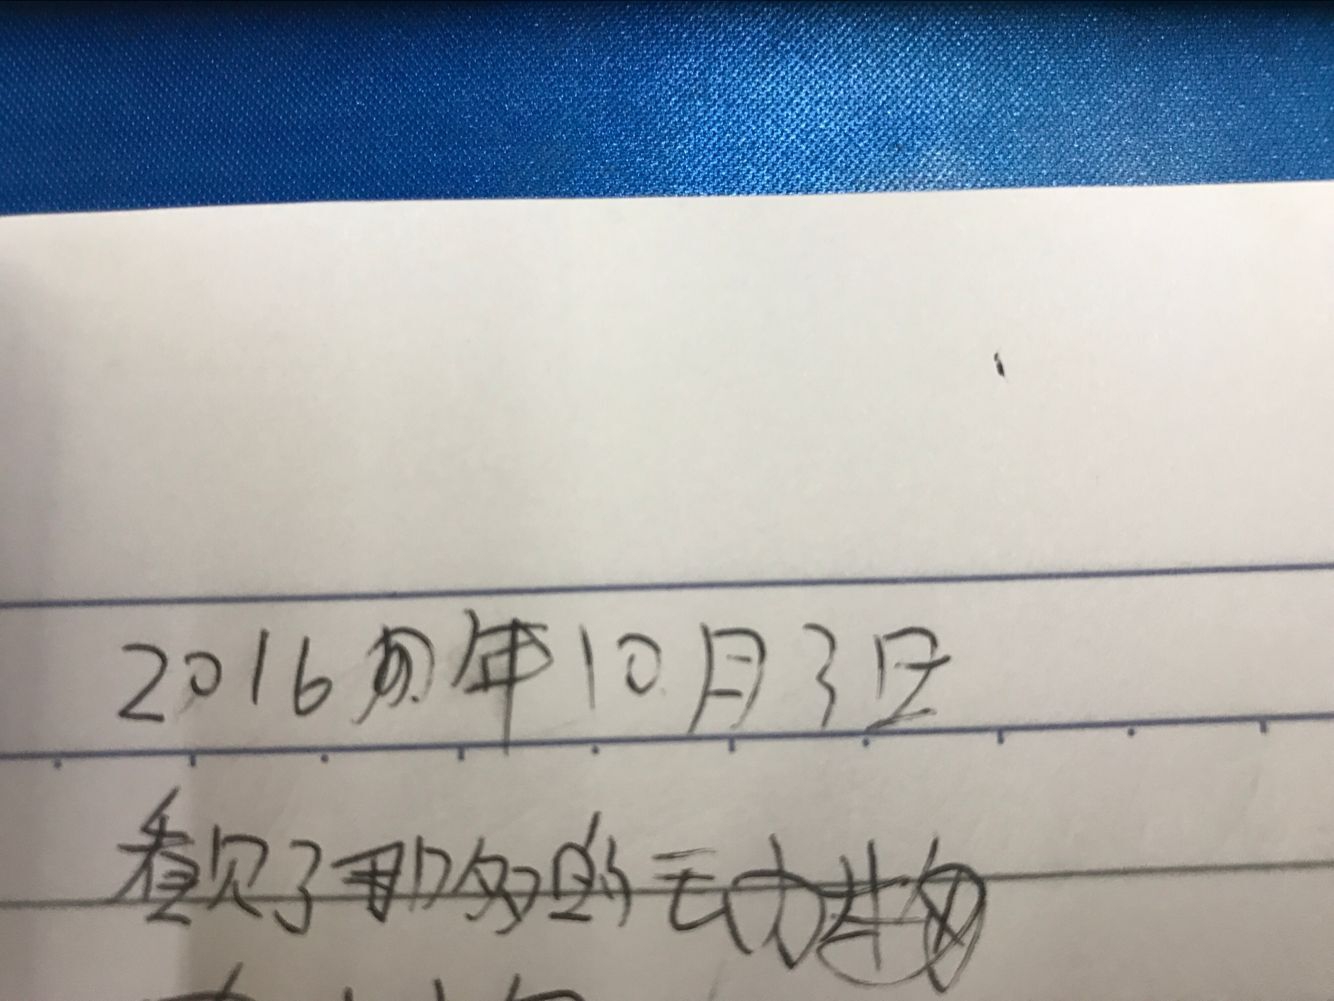 2016年10月3日
看见了那多的动物